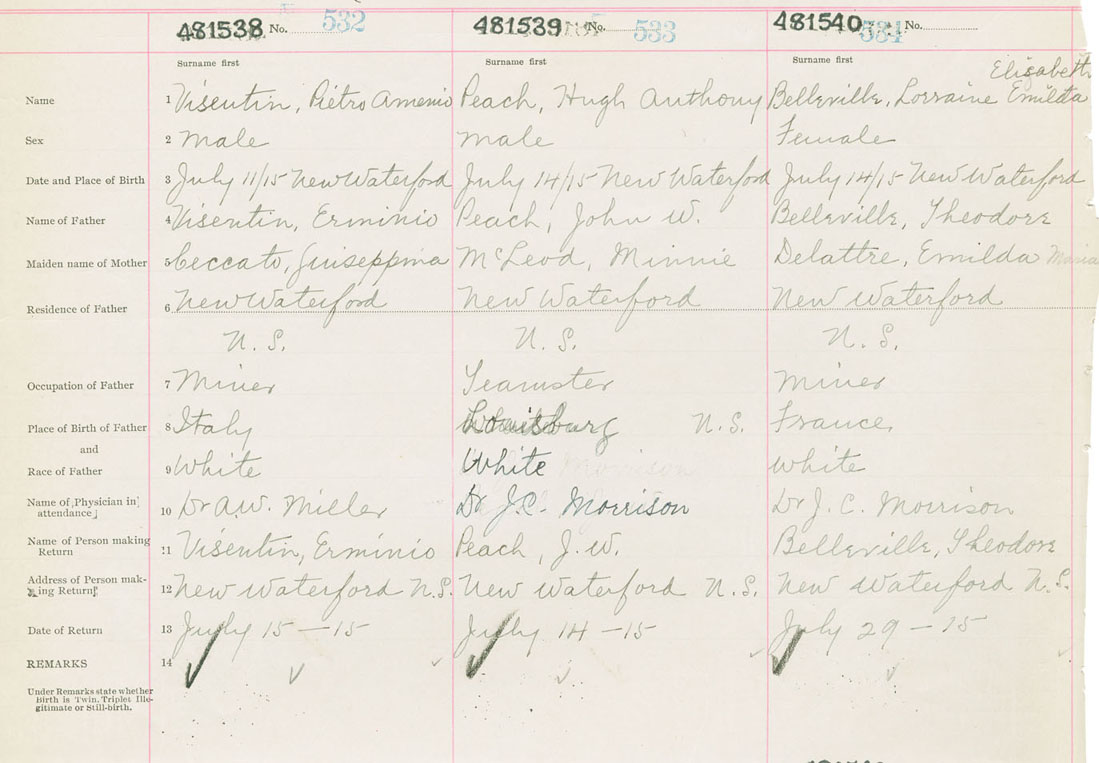 481538 No. 532 481539 No. 533 481540 No. 534
Surname first Surname first Surname first
Elisabeth
Name 1 Visentin, Pietro Amenio Peach, Hugh Anthony Belleville, Lorraine Emilda
Sex 2 Male Male Female
Date and Place of Birth 3 July 11/15 New Waterford July 14/15 New Waterford July 14/15 New Waterford
Name of Father 4 Visentin, Erminio Peach, John W. Belleville, Theodore
Maiden name of Mother 5 Ceccato, Guiseppina McLeod, Minnie Delattre, Emilda Maria
Residence of Father 6 New Waterford New Waterford New Waterford
N. S. N. S. N. S.
Occupation of Father 7 Miner Teamster Miner
Place of Birth of Father 8 Italy Louisburg N.S. France
and
Race of Father 9 White White Morrison White
Name of Physician in
attendance 10 Dr A.W. Miller Dr J.C. Morrison Dr J. C. Morrison
Name of Person making
Return 11 Visentin, Erminio Peach, J. W. Belleville, Theodore
Address of Person mak-
ing Return 12 New Waterford N.S. New Waterford N.S. New Waterford N.S.
Date of Return 13 July 15 - 15 July 14 - 15 July 29 - 15
REMARKS 14
Under Remarks state whether
Birth is Twin, Triplet Ille-
gitimate or Still-birth.